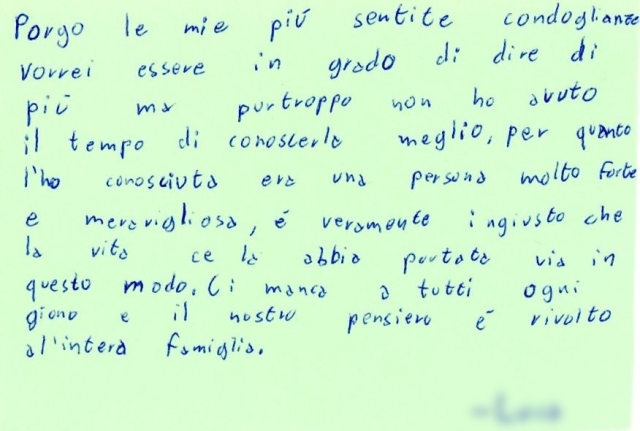 Porgo le mie più sentite condoglianze
vorrei essere in grado di dire di
più ma purtroppo non ho avuto
il tempo di conoscerla meglio, per quanto
l'ho conosciuta era una persona molto forte
e meravigliosa, é veramente ingiusto che
la vita ce la abbia portata via in
questo modo. Ci manca a tutti ogni
giono e il nostro pensiero é rivolto
all'intera famiglia.